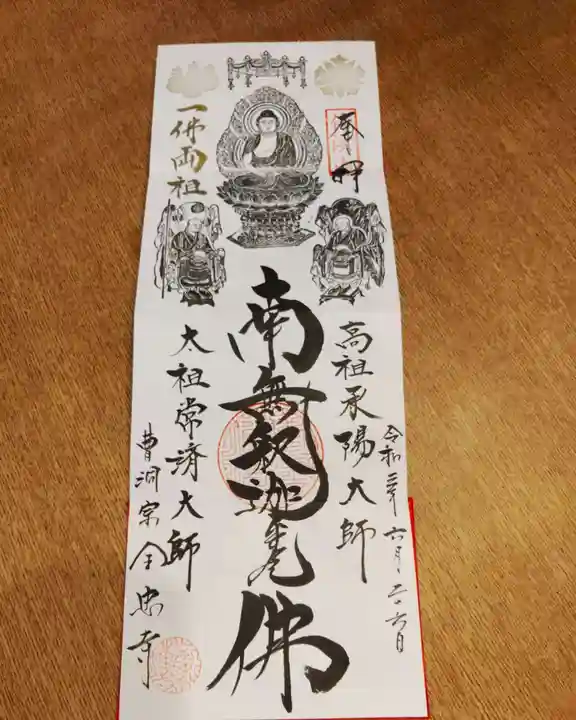 奉拝
令和三年六月二六日
高祖承陽大師
南無釈迦牟尼佛
一佛両祖
太祖常済大師
曹洞宗全忠寺